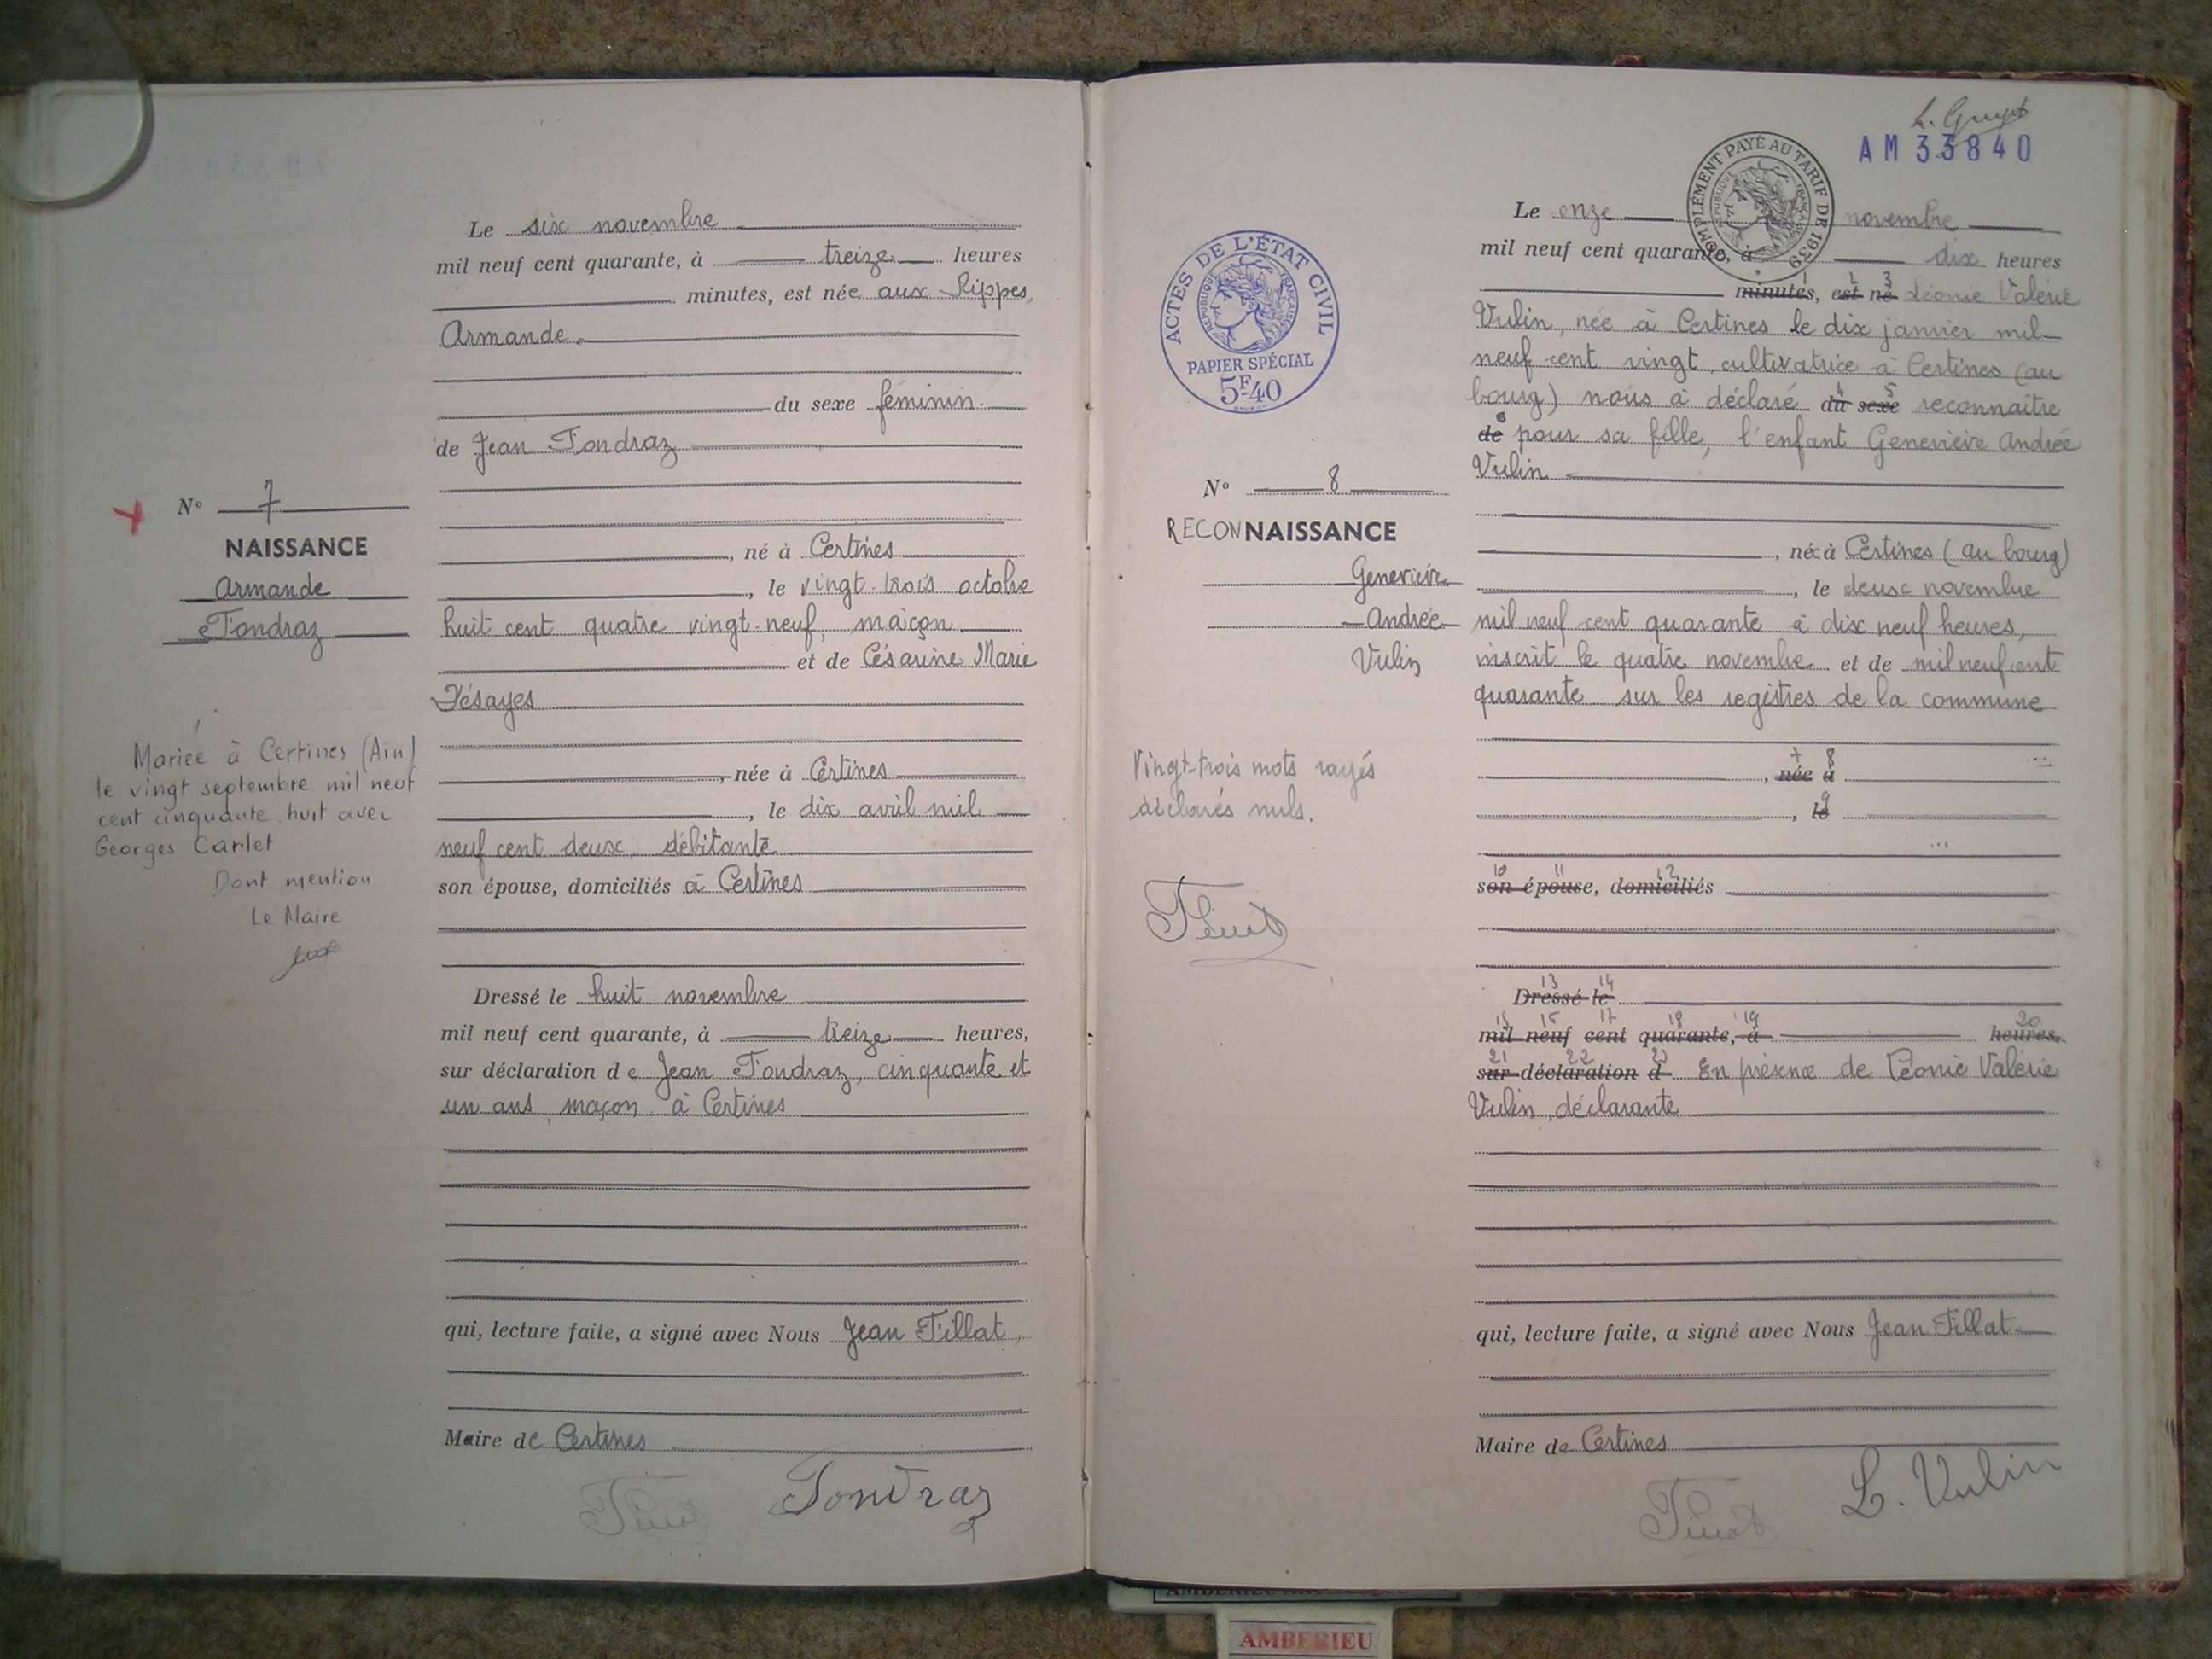 Le six novembre
mil neuf cent quarante, à treize heures
minutes, est née aux Rippes,
Armande.
du sexe féminin.
de Jean Tondraz
né à Certines
, le vingt-trois octobre
huit cent quatre vingt-neuf, maçon
et de Césarine Marie
Désayes
, née à Certines
, le dix avril mil
neuf cent deux, débitante
son épouse, domiciliés à Certines
Dressé le huit novembre
mil neuf cent quarante, à treize heures,
sur déclaration de Jean Tondraz, cinquante et
un ans, maçon à Certines
qui, lecture faite, a signé avec Nous Jean Tillat,
Maire de Certines
Tondraz
No 7
NAISSANCE
Armande
Tondraz
Mariée à Certines (Ain)
le vingt septembre mil neuf
cent cinquante huit avec
Georges Carlet
Dont mention
Le Maire
AM 33840
COMPLÉMENT PAYÉ AU TARIF DE 1939
RÉPUBLIQUE FRANÇAISE
ACTES DE L'ÉTAT CIVIL
RÉPUBLIQUE FRANÇAISE
PAPIER SPÉCIAL
5F40
No 8
RECONNAISSANCE
Geneviève
Andrée
Vulin
Vingt-trois mots rayés
déclarés nuls.
Le onze novembre
mil neuf cent quarante, à dix heures
1 2 3
minutes, est né Léonie Valérie
Vulin, née à Certines le dix janvier mil
neuf cent vingt, cultivatrice à Certines (au
4 5
bourg) nous a déclaré du sexe reconnaître
6
de pour sa fille, l'enfant Geneviève Andrée
Vulin
, née à Certines (au bourg)
, le deux novembre
mil neuf cent quarante à dix neuf heures,
inscrit le quatre novembre et de mil neuf cent
quarante sur les registres de la commune
7 8
, née à
9
, le
10 11 12
son épouse, domiciliés
13 14
Dressé le
15 16 17 18 19 20
mil neuf cent quarante, à heures,
21 22 23
sur déclaration d En présence de Léonie Valérie
Vulin, déclarante
qui, lecture faite, a signé avec Nous Jean Tillat
Maire de Certines
L. Vulin
AMBERIEU